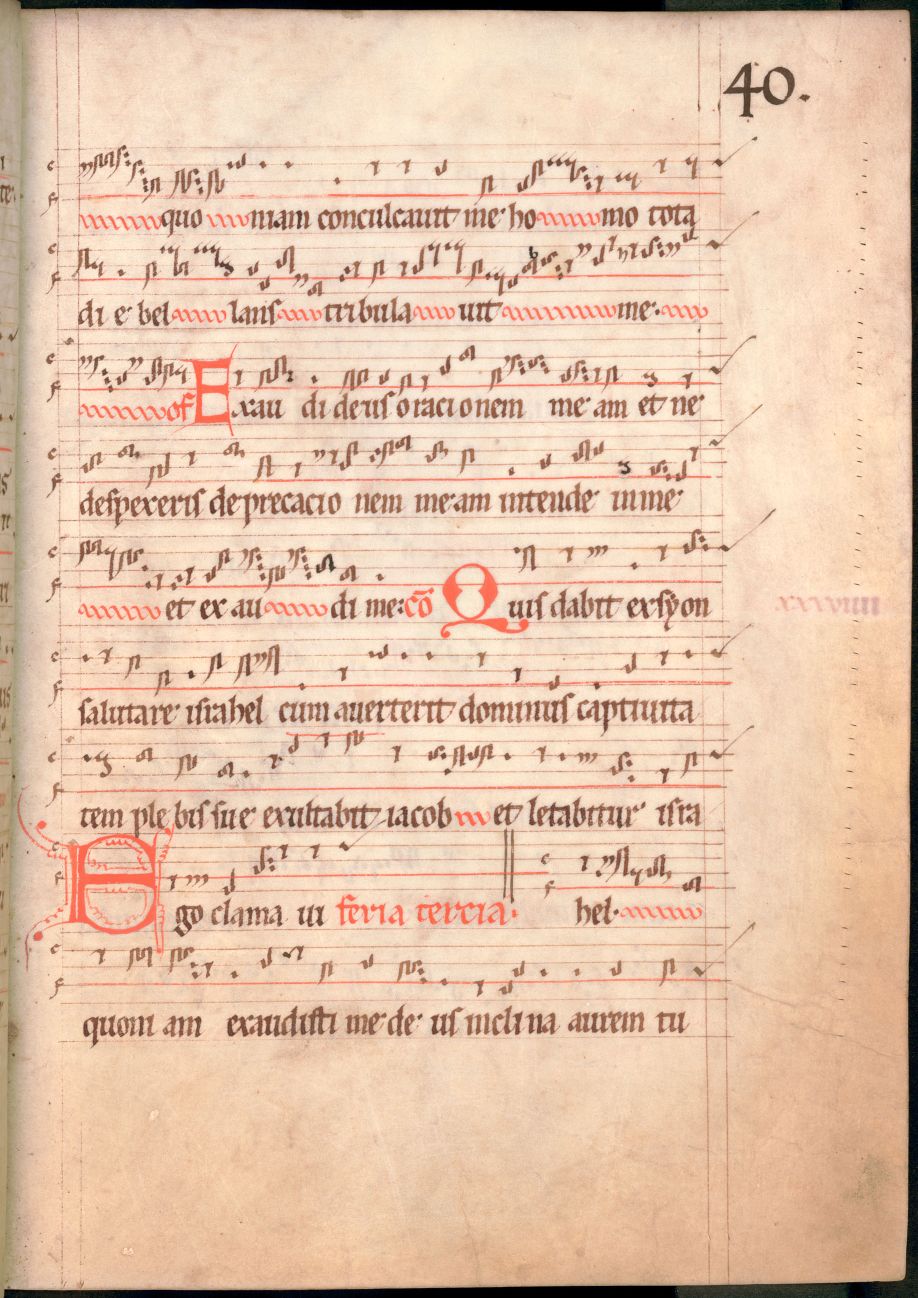 40.
quo niam conculcauit me ho mo tota
di e bel lans tribula uit me.
of Exau di deus oracionem me am et ne
despexeris deprecacio nem meam intende in me
et ex au di me: cō Quis dabit exsyon
salutare israhel cum auerterit dominus captiuita
tem ple bis sue exultabit iacob et letabitur isra
Ego clama ui feria tercia. hel.
quoni am exaudisti me de us incli na aurem tu